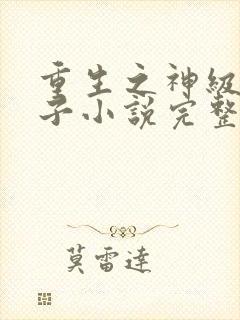 重生之神級
子小說完整
莫雷達